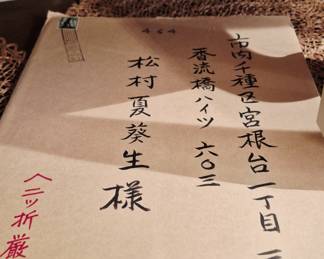 464
市内千種区宮根台一丁目
香流橋ハイツ 六〇三
松村夏葵生様
ヘ二ッ折厳